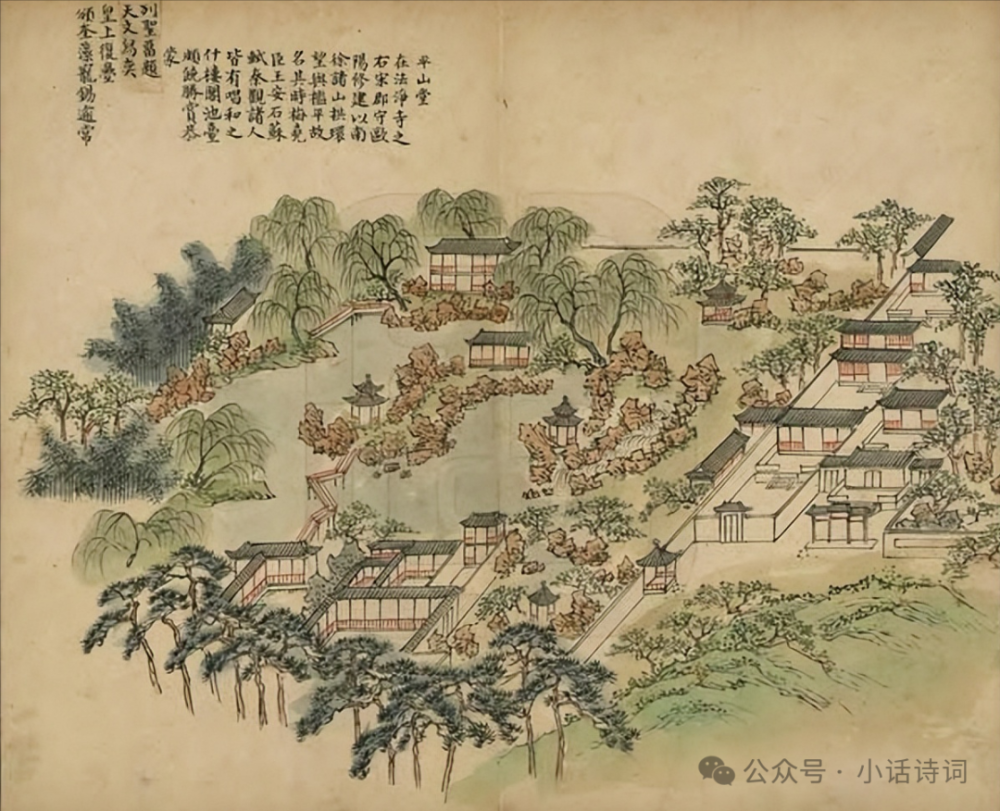 平山堂
在法淨寺之
右宋郡守歐
陽修建以南
徐諸山拱環
望與檻平故
名其時梅堯
臣王安石蘇
軾秦觀諸人
皆有唱和之
什樓閣池臺
頗饒勝賞恭
蒙
列聖畱題
天文舄奕
皇上復疊
頒奎藻寵錫逾常
公众号 · 小话诗词